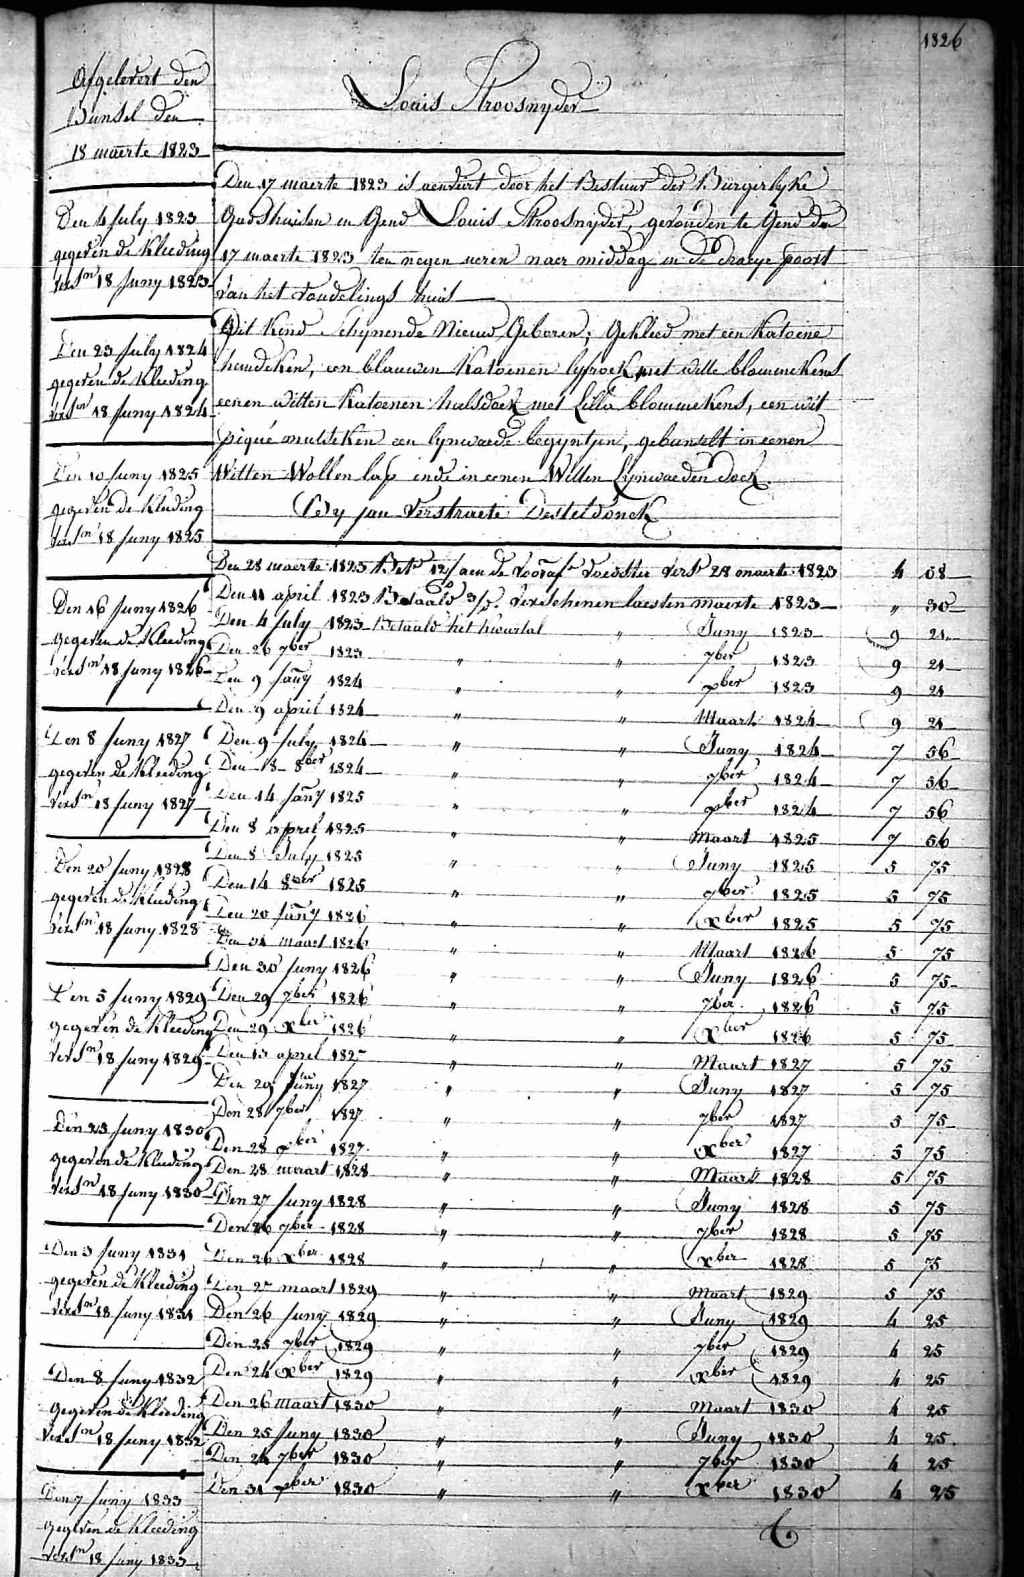 1826
Afgelevert den
Bunsel den
18 maerte 1823
Den 4 July 1823
gegeven de Kleeding
versn 18 Juny 1823
Den 23 July 1824
gegeven de Kleeding
versn 18 Juny 1824
Den 10 Juny 1825
gegeven de Kleeding
versn 18 Juny 1825
Den 16 Juny 1826
gegeven de Kleeding
versn 18 Juny 1826
Den 8 Juny 1827
gegeven de Kleeding
versn 18 Juny 1827
Den 20 Juny 1828
gegeven de Kleeding
versn 18 Juny 1828
Den 5 Juny 1829
gegeven de Kleeding
versn 18 Juny 1829
Den 23 Juny 1830
gegeven de Kleeding
versn 18 Juny 1830
Den 3 Juny 1831
gegeven de Kleeding
versn 18 Juny 1831
Den 8 Juny 1832
gegeven de Kleeding
versn 18 Juny 1832
Den 7 Juny 1833
gegeven de Kleeding
versn 18 Juny 1833
Louis Stroosnyder
Den 17 maerte 1823 is aenveirt door het Bestuur der Burgerlyke
Godshuisen in Gend Louis Stroosnyder, gevonden te Gend den
17 maerte 1823 ten negen ueren naer middag in de draeye poort
van het vondelings huis
Dit kind schynende Nieuw Geboren; Gekleed met een Katoene
hemdeken, een blauwen Katoenen lyfrock met witte blommekens
eenen witten Katoenen halsdoek met Lilla blommekens, een wit
piqué mutsken een lynwaede begyntjen, gebunselt in eenen
Witten Wollen lap ende in eenen Witten Lynwaeden doek.
By jan Verstraete Desteldonck
Den 28 maerte 1823 Bet. 12/ aen de vooraf. voedster vers. 28 maerte 1823 4 08
Den 11 april 1823 Betaald 3/. verschenen laesten maerte 1823 " 30
Den 4 July 1823 Betaald het kwartal " Juny 1823 9 21
Den 26 7ber 1823 " " 7ber 1823 9 21
Den 9 Janny 1824 " " xber 1823 9 21
Den 9 april 1824 " " Maart 1824 9 21
Den 9 July 1824 " " Juny 1824 7 56
Den 18 8ber 1824 " " 7ber 1824 7 56
Den 14 Janny 1825 " " xber 1824 7 56
Den 8 april 1825 " " Maart 1825 7 56
Den 8 July 1825 " " Juny 1825 5 75
Den 14 8ber 1825 " " 7ber 1825 5 75
Den 20 Janny 1826 " " xber 1825 5 75
Den 31 maart 1826 " " Maart 1826 5 75
Den 30 Juny 1826 " " Juny 1826 5 75
Den 29 7ber 1826 " " 7ber 1826 5 75
Den 29 xber 1826 " " xber 1826 5 75
Den 13 april 1827 " " Maart 1827 5 75
Den 29 Juny 1827 " " Juny 1827 5 75
Den 28 7ber 1827 " " 7ber 1827 5 75
Den 28 xber 1827 " " xber 1827 5 75
Den 28 maart 1828 " " Maart 1828 5 75
Den 27 Juny 1828 " " Juny 1828 5 75
Den 26 7ber 1828 " " 7ber 1828 5 75
Den 26 xber 1828 " " xber 1828 5 75
Den 27 maart 1829 " " Maart 1829 5 75
Den 26 Juny 1829 " " Juny 1829 4 25
Den 25 7ber 1829 " " 7ber 1829 4 25
Den 24 xber 1829 " " xber 1829 4 25
Den 26 maart 1830 " " Maart 1830 4 25
Den 25 Juny 1830 " " Juny 1830 4 25
Den 24 7ber 1830 " " 7ber 1830 4 25
Den 31 xber 1830 " " xber 1830 4 25